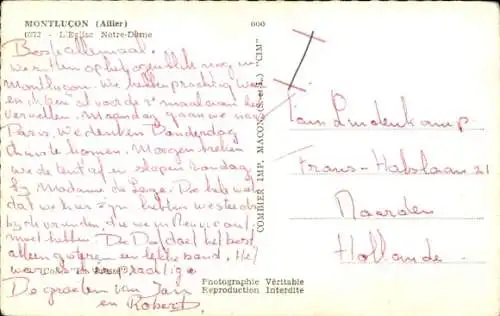 MONTLUÇON (Allier)
6372 - L'Eglise Notre-Dame
600
Beste allemaal.
we zitten op het ogenblik nog in
Montluçon. We hebben prachtig weer
en ik ben al voor de 2e maal aan het
vervellen. Maandag gaan we naar
Parijs. We denken Donderdag
thuis te komen. Morgen breken
we de tent af en slapen zondag
bij Madame de
dat we hier zijn hebben we steeds
bij de vrienden, die we in
moet hebben. De Daf doet het best
alleen gisteren een lekke band. Het
was prachtig
De groeten van Jan
en Robert
COMBIER IMP. MACON (S.-et-L.) "CIM"
Fam Lindenkamp
Frans-Halslaan 21
Naarden
Hollande
Photographie Véritable
Reproduction Interdite